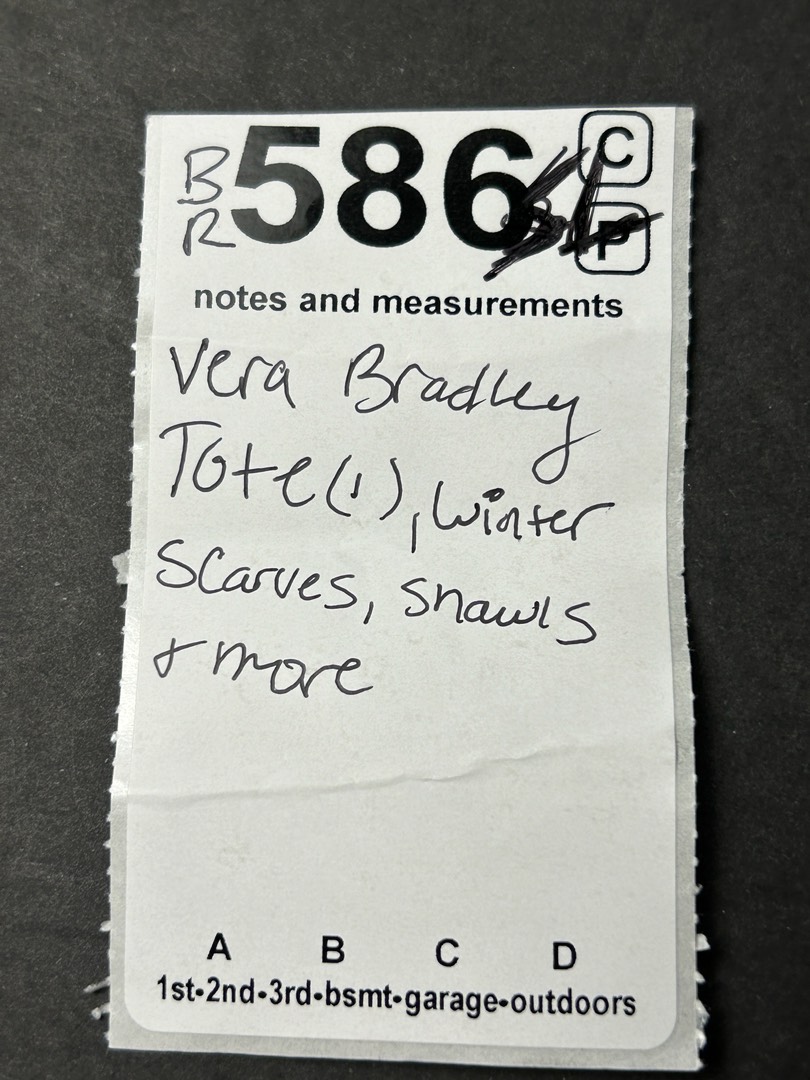 BR 586 C
P
notes and measurements
Vera Bradley
Tote (1), winter
Scarves, shawls
+ more
A B C D
1st•2nd•3rd•bsmt•garage•outdoors